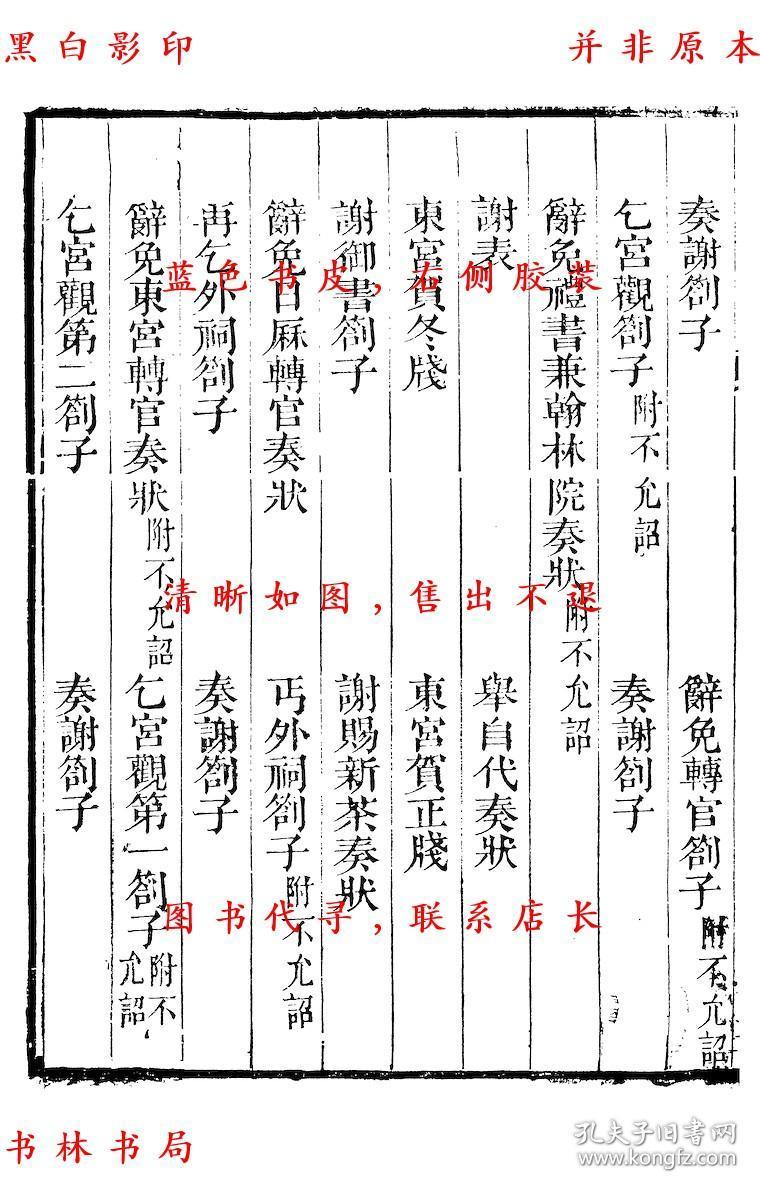 黑白影印
并非原本
奏謝劄子
辭免轉官劄子附不允詔
乞宮觀劄子附不允詔
奏謝劄子
辭免禮書兼翰林院奏狀附不允詔
謝表
舉自代奏狀
東宮賀冬牋
東宮賀正牋
謝御書劄子
謝賜新茶奏狀
辭免白麻轉官奏狀
丐外祠劄子附不允詔
再乞外祠劄子
奏謝劄子
辭免東宮轉官奏狀附不允詔
乞宮觀第一劄子附不允詔
乞宮觀第二劄子
奏謝劄子
蓝色书皮,右侧胶装
清晰如图,售出不退
图书代寻,联系店长
书林书局
孔夫子旧书网
www.kongfz.com